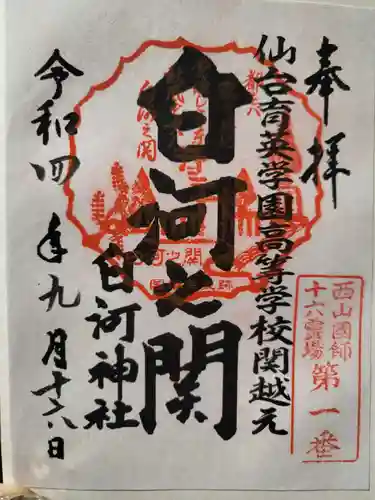 奉拝
西山國師
十六霊場
第一番
仙台育英学園高等学校関越え
白河之関
白河神社
令和四年九月十六日